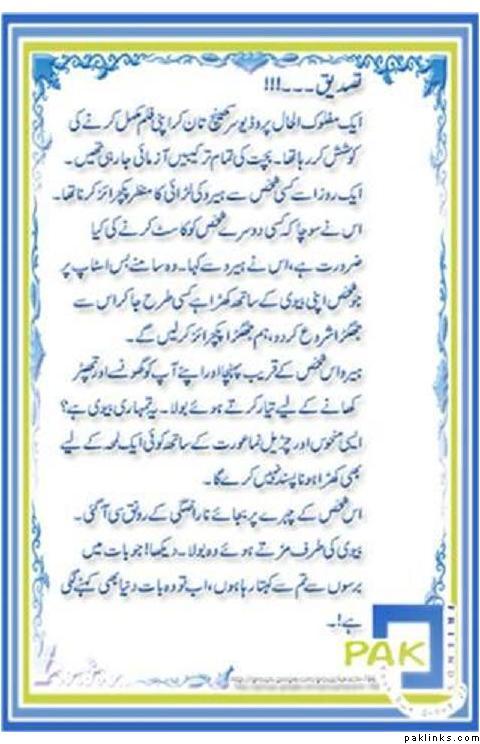 تصدیق ۔۔۔!!!
ایک مفلوک الحال پروڈیوسر کھینچ تان کر اپنی فلم مکمل کرنے کی
کوشش کر رہا تھا۔ بچت کی تمام ترکیبیں آزمائی جا رہی تھیں۔
ایک روز اسے کسی شخص سے ہیرو کی لڑائی کا منظر پکچرائز کرنا تھا۔
اس نے سوچا کہ کسی دوسرے شخص کو کاسٹ کرنے کی کیا
ضرورت ہے، اس نے ہیرو سے کہا۔ وہ سامنے بس اسٹاپ پر
جو شخص اپنی بیوی کے ساتھ کھڑا ہے کسی طرح جا کر اس سے
جھگڑا شروع کر دو، ہم جھگڑا پکچرائز کر لیں گے۔
ہیرو اس شخص کے قریب پہنچا اور اپنے آپ کو گھونسے اور تھپڑ
کھانے کے لیے تیار کرتے ہوئے بولا۔ یہ تمہاری بیوی ہے؟
ایسی منحوس اور چڑیل نما عورت کے ساتھ کوئی ایک لمحہ کے لیے
بھی کھڑا ہونا پسند نہیں کرے گا۔
اس شخص کے چہرے پر بجائے ناراضگی کے رونق سی آ گئی۔
بیوی کی طرف مڑتے ہوئے وہ بولا۔ دیکھا! جو بات میں
برسوں سے تم سے کہتا رہا ہوں، اب تو وہ بات دنیا بھی کہنے لگی
ہے!۔
PAK
paklinks.com